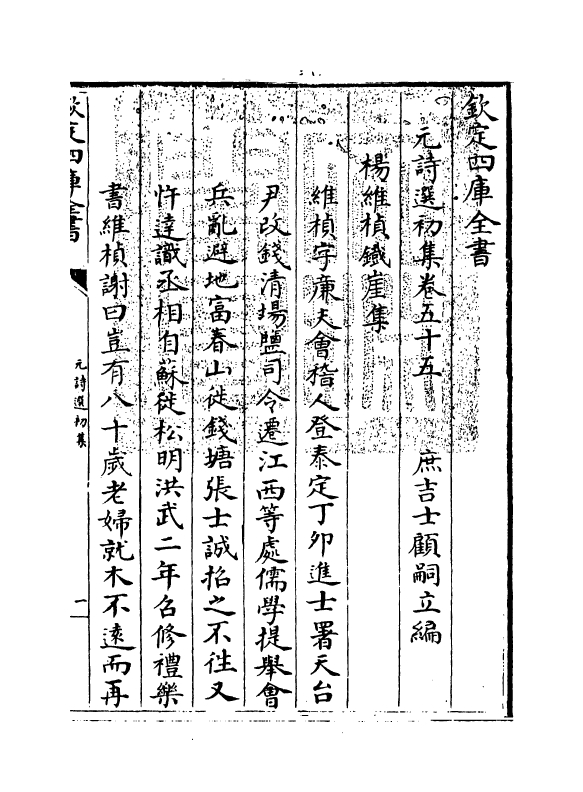 欽定四庫全書
元詩選初集卷五十五　　庶吉士顧嗣立編
楊維楨鐵崖集
維楨字廉夫會稽人登泰定丁卯進士署天台
尹改錢清場鹽司令遷江西等處儒學提舉會
兵亂避地富春山徙錢塘張士誠招之不往又
忤達識丞相自蘇徙松明洪武二年召修禮樂
書維楨謝曰豈有八十歲老婦就木不遠而再
欽定四庫全書
元詩選初集
一